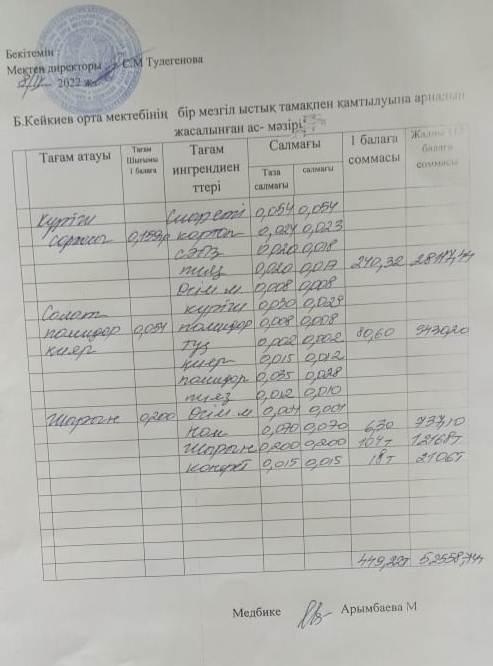 Бекітемін
Мектеп директоры С.М Тулегенова
2022 ж
Б.Кейкиев орта мектебінің бір мезгіл ыстық тамақпен қамтылуына арналып
жасалынған ас- мәзірі
Тағам атауы Тағам Шығымы 1 балаға Тағам ингрендиенттері Салмағы 1 балаға соммасы балаға соммасы
Таза салмағы салмағы
Күріш 0,054 0,054
сорпасы 0,159 картоп 0,024 0,023
сәбіз 0,020 0,018
пияз 0,020 0,017 240,32
Өсім м 0,008 0,008
Салат күріш 0,030 0,029
помидор 0,054 помидор 0,008 0,008
кияр тұз 0,002 0,002 80,60 943020
кияр 0,015 0,012
помидор 0,035 0,028
пияз 0,012 0,010
Шырын 0,200 Өсім м 0,004 0,004
нан 0,070 0,070 6,30 737,10
Шырын 0,200 0,200 104т 12168т
конфет 0,015 0,015 18т 2106т
449,22т
Медбике Арымбаева М